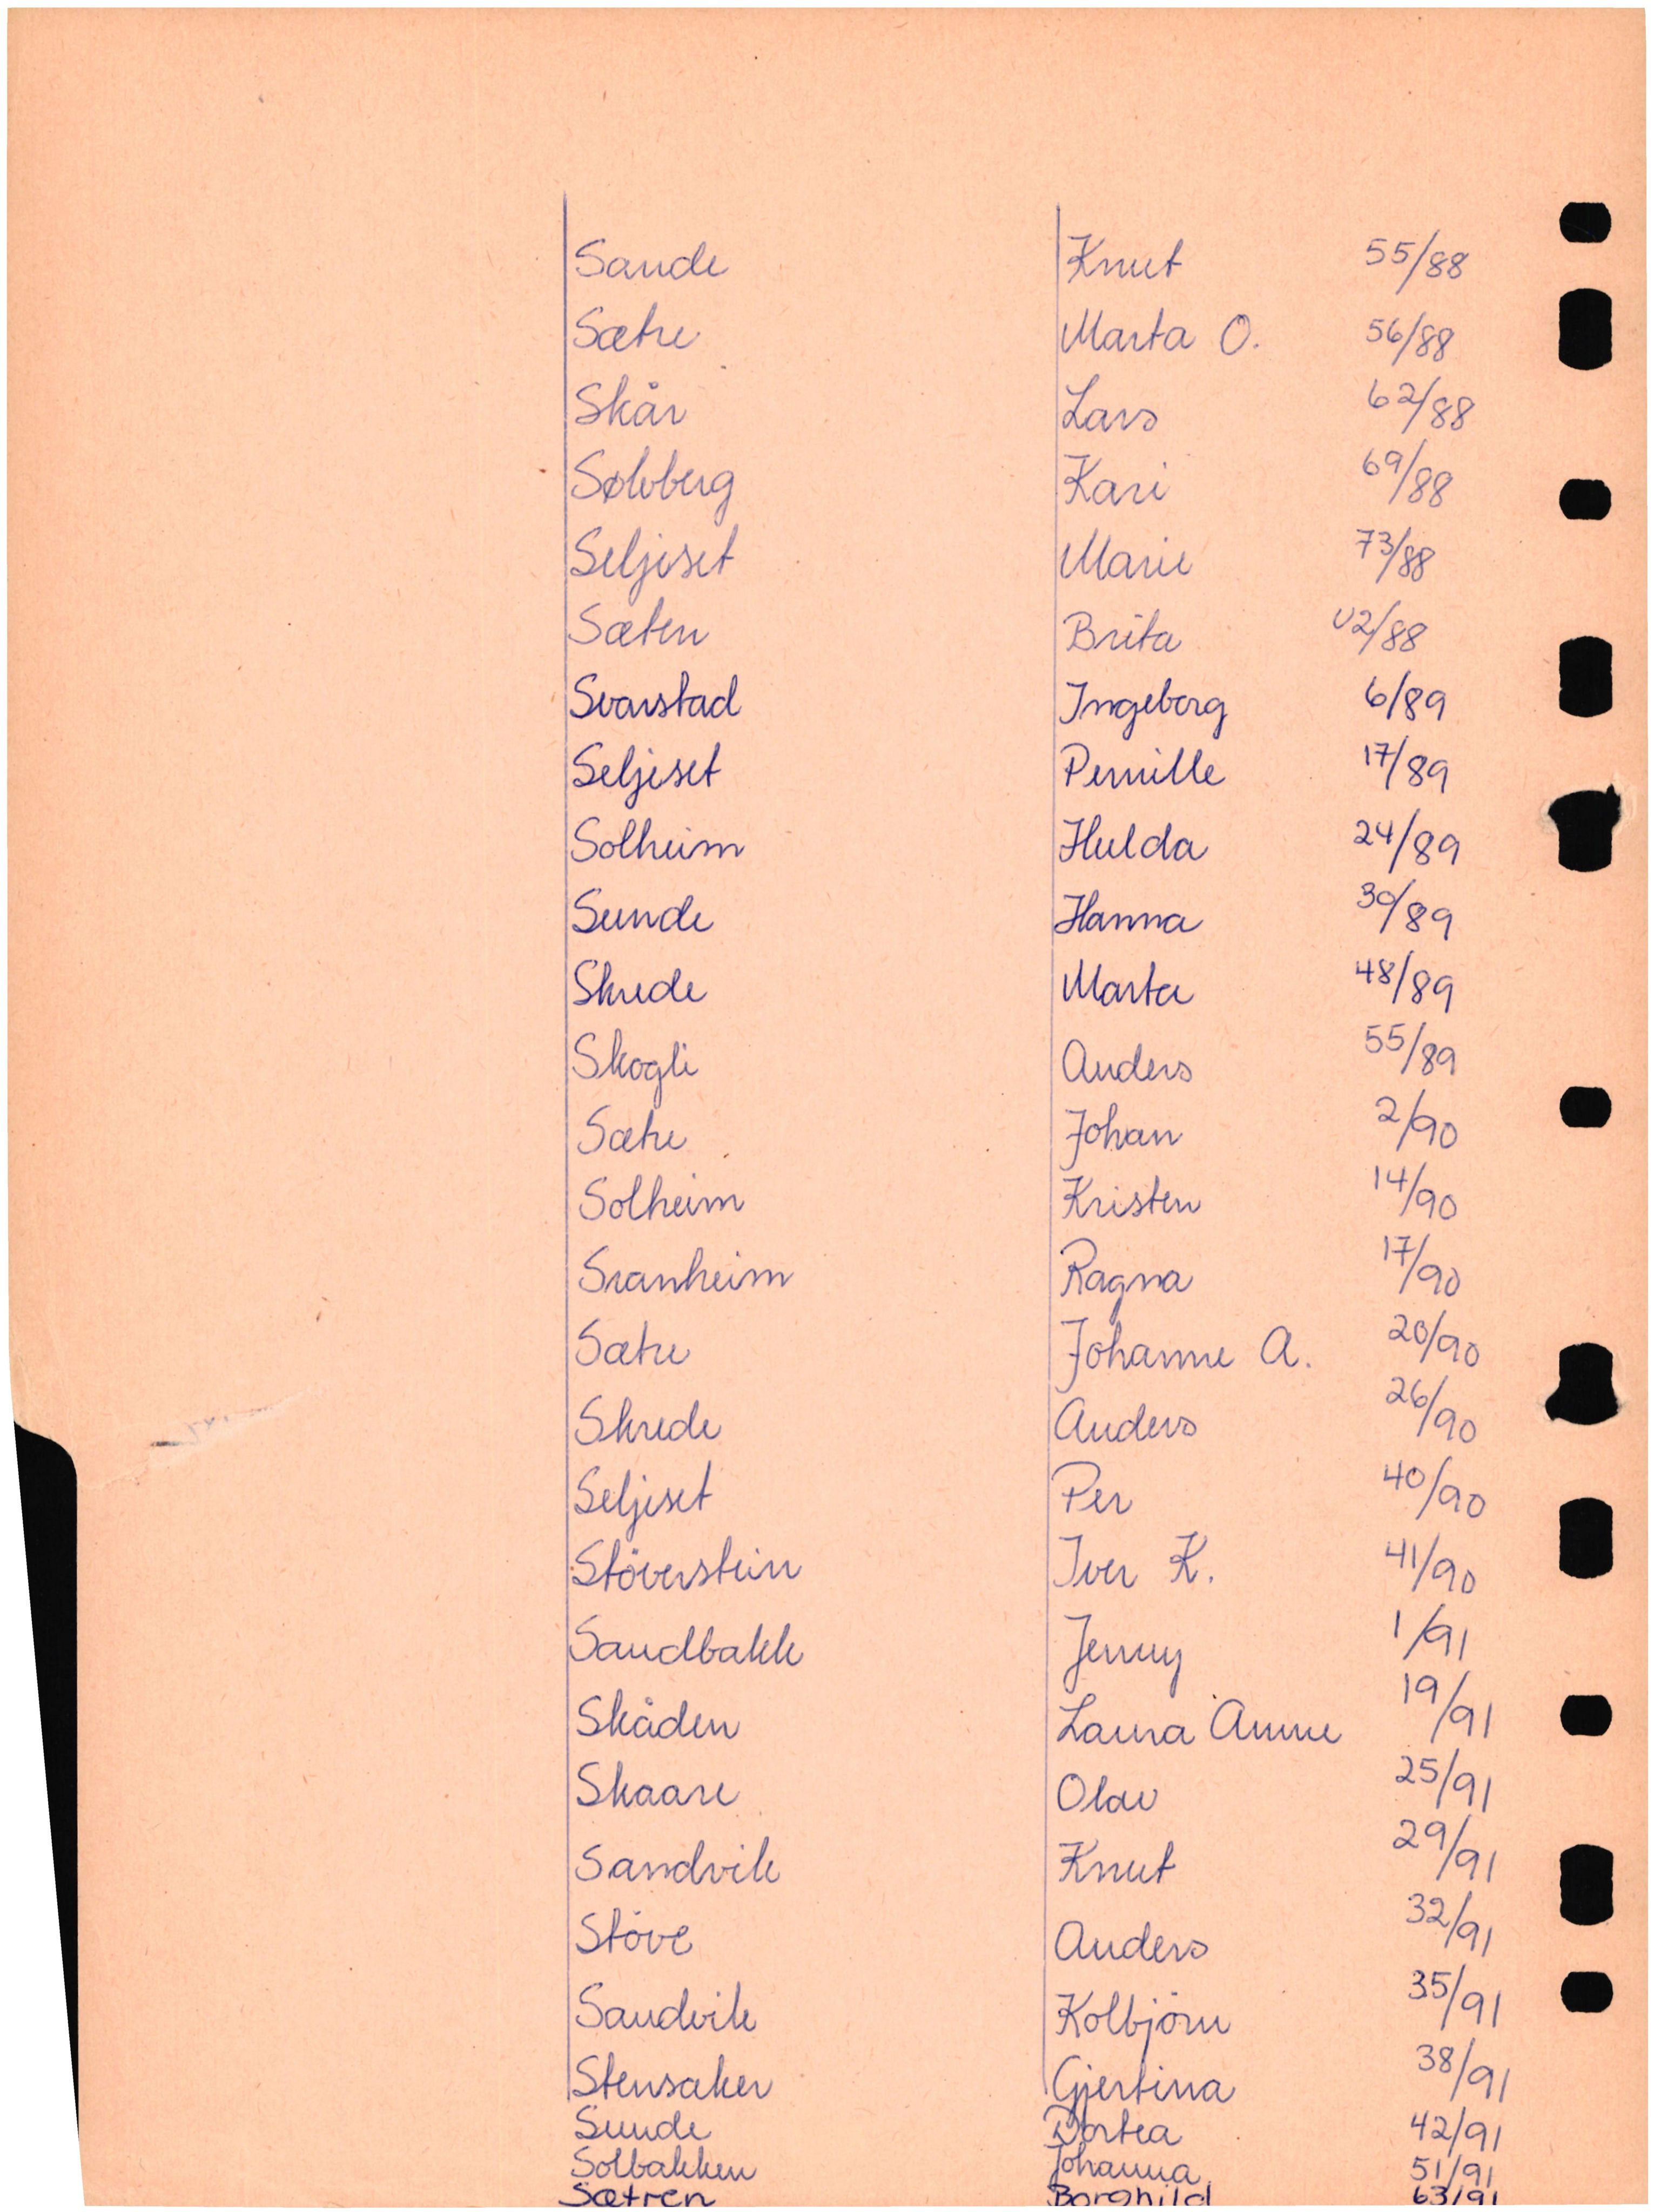 Sande Knut 55/88
Sætre Marta O. 56/88
Skår Lars 62/88
Sølvberg Kari 69/88
Seljeset Marie 73/88
Sæten Brita U2/88
Svarstad Ingeborg 6/89
Seljeset Pernille 17/89
Solheim Hulda 24/89
Sunde Hanna 30/89
Skrede Marta 48/89
Skogli Anders 55/89
Sætre Johan 2/90
Solheim Kristen 14/90
Sranheim Ragna 17/90
Sætre Johanne A. 20/90
Skrede Anders 26/90
Seljeset Per 40/90
Støverstein Iver K. 41/90
Sandbakk Jenny 1/91
Skåden Laura Anne 19/91
Skaare Olav 25/91
Sandvik Knut 29/91
Støve Anders 32/91
Sandvik Kolbjørn 35/91
Stensaker Gjertina 38/91
Sunde Dortea 42/91
Solbakken Johanna 51/91
Sætren Borghild 63/91